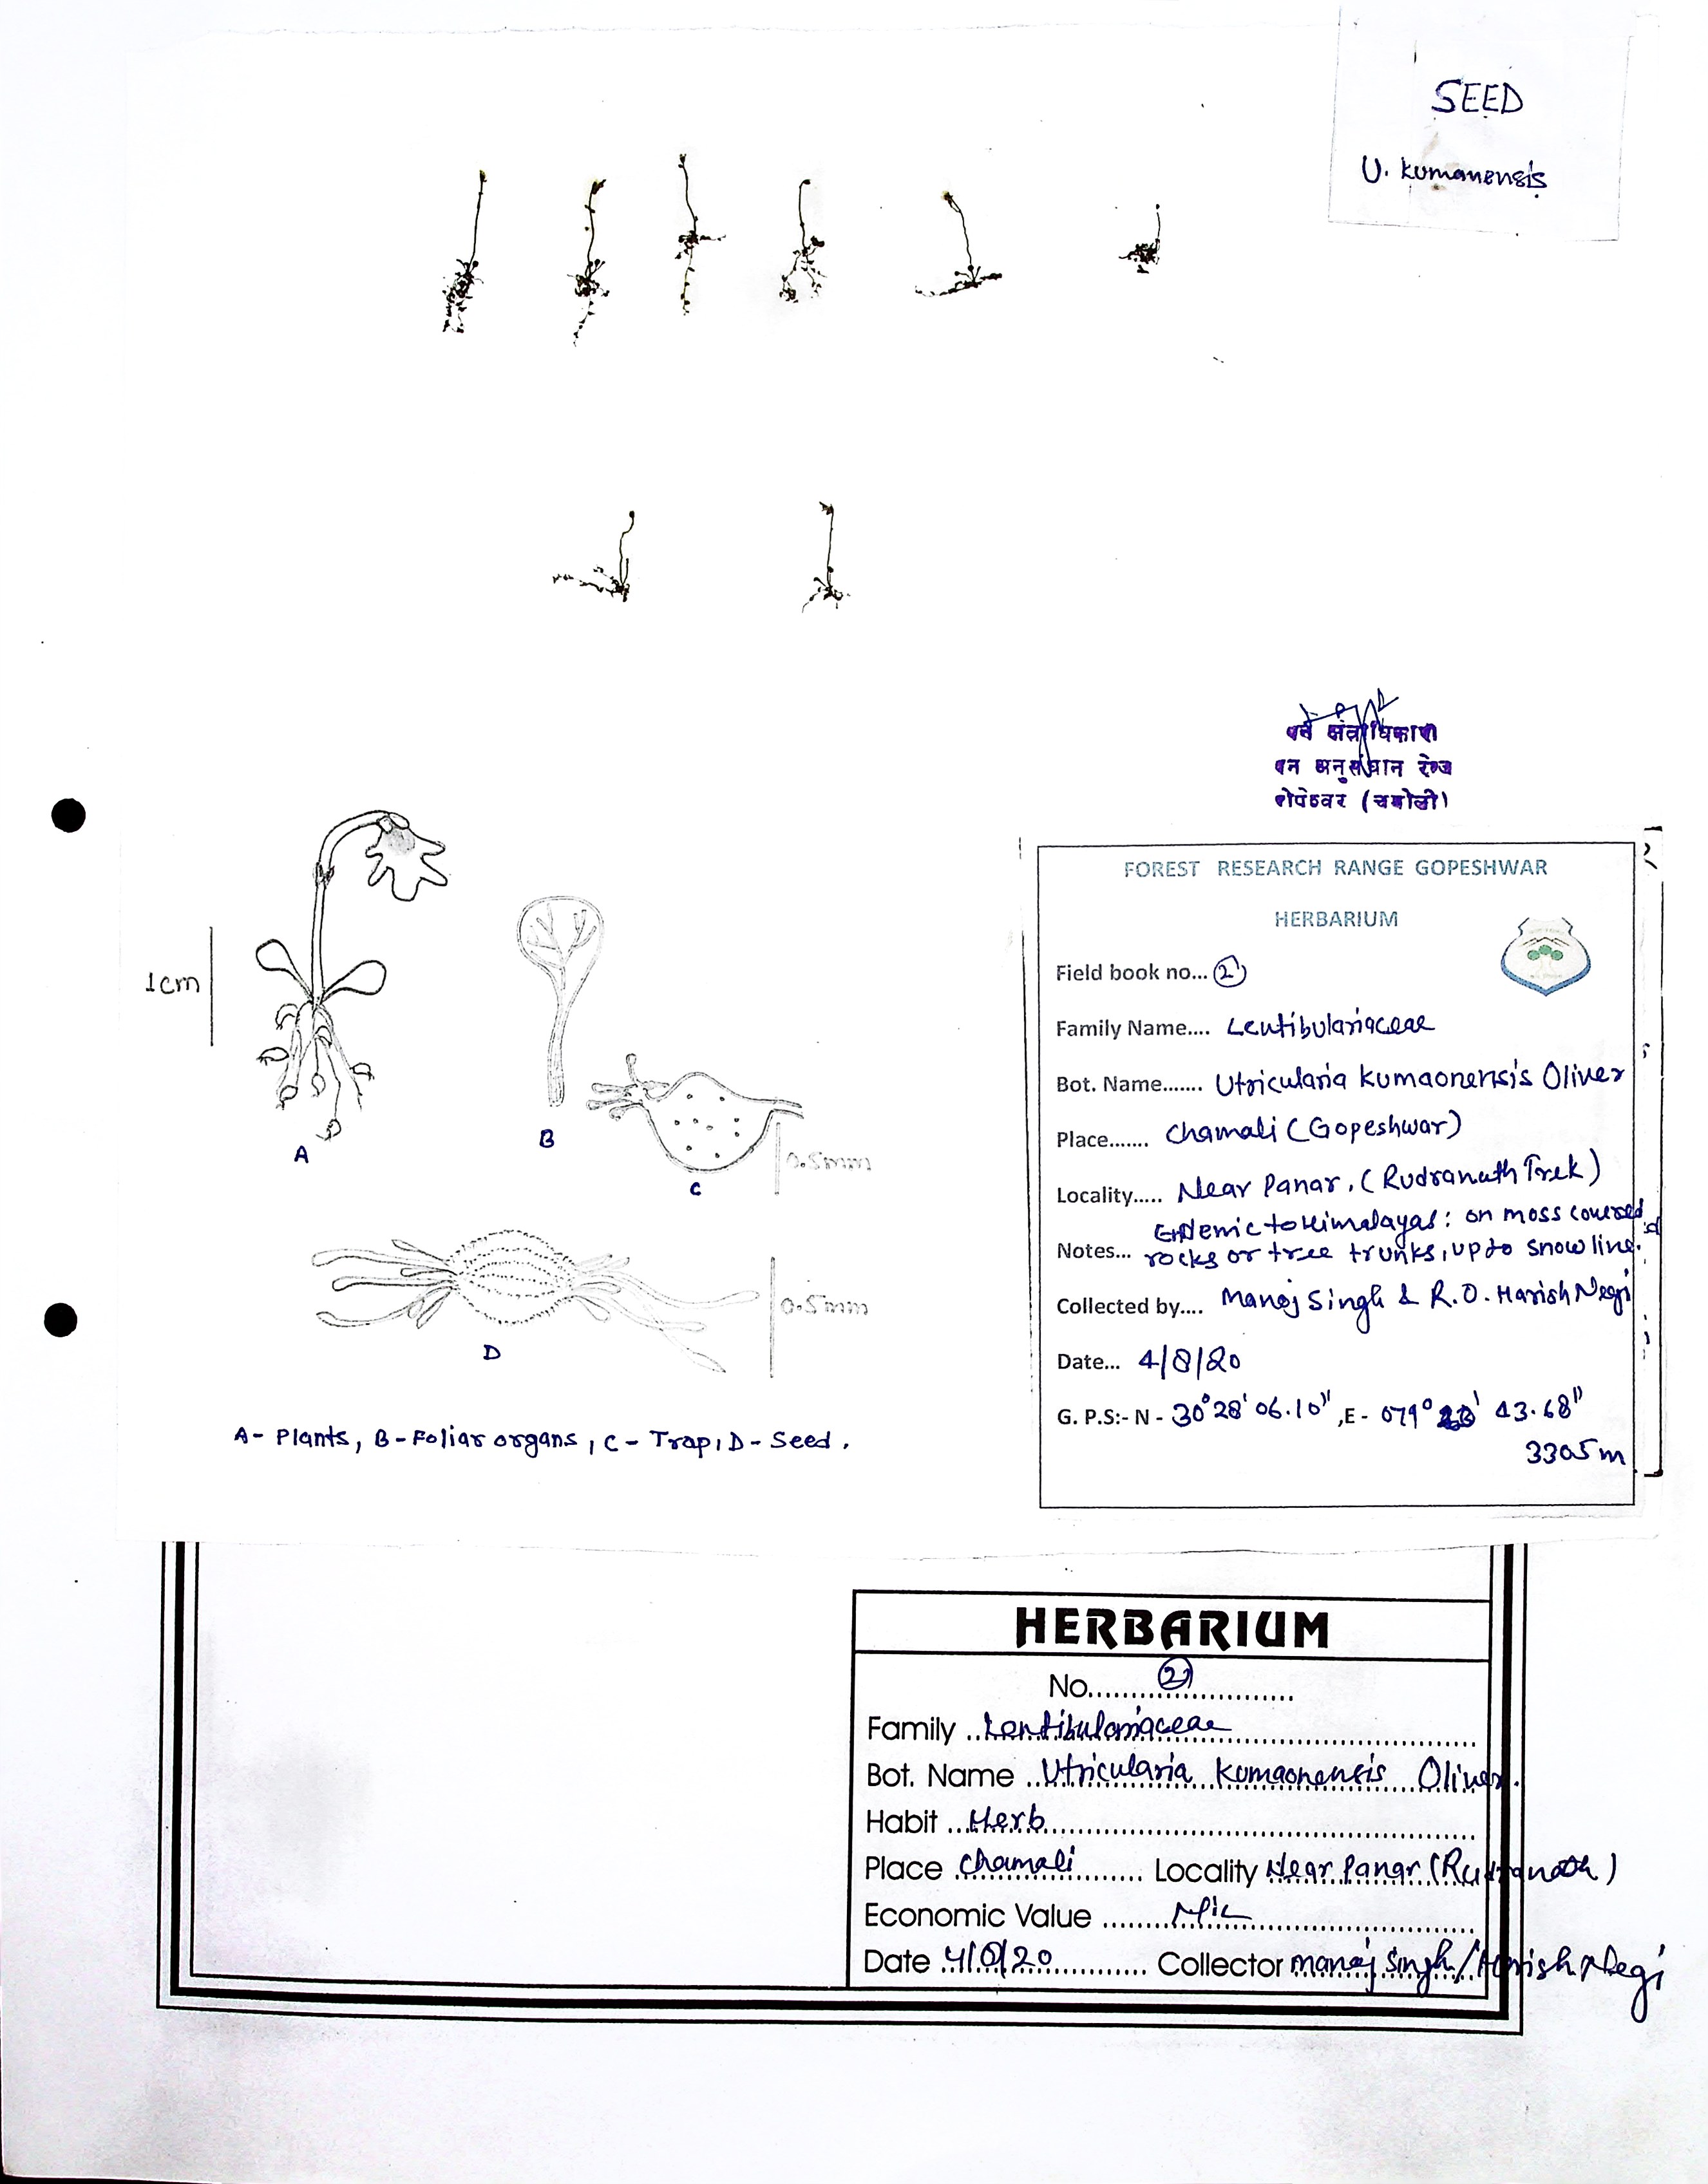 SEED
U. kumanensis
वन अनुसंधान रेन्ज
गोपेश्वर (चमोली)
FOREST RESEARCH RANGE GOPESHWAR
HERBARIUM
Field book no... 2
Family Name.... Lentibulariaceae
Bot. Name....... Utricularia kumaonensis Oliver
Place....... Chamali (Gopeshwar)
Locality..... Near Panar, (Rudranath Trek)
Notes... Endemic to Himalayas: on moss covered
rocks or tree trunks, up to snow line.
Collected by.... Manoj Singh & R.O. Harish Negi
Date... 4/8/20
G. P.S:- N - 30° 28' 06.10", E - 079° 43.68"
3305 m
1cm
A
B
C
0.5mm
D
0.5mm
A- Plants, B- Foliar organs, C- Trap, D- Seed.
HERBARIUM
No. 2
Family Lentibulariaceae
Bot. Name Utricularia kumaonensis Oliver.
Habit Herb
Place Chamali Locality Near Panar (Rudranath)
Economic Value Nil
Date 4/8/20 Collector Manoj Singh / Harish Negi